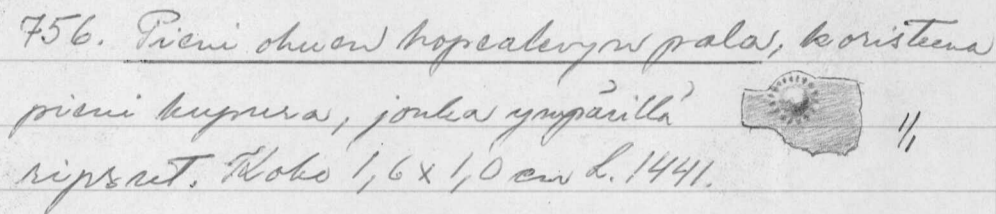 756. Pieni ohuen hopealevyn pala, koristeena
pieni kupura, jonka ympärillä 1/1
ripset. Koko 1,6 x 1,0 cm L. 1441.